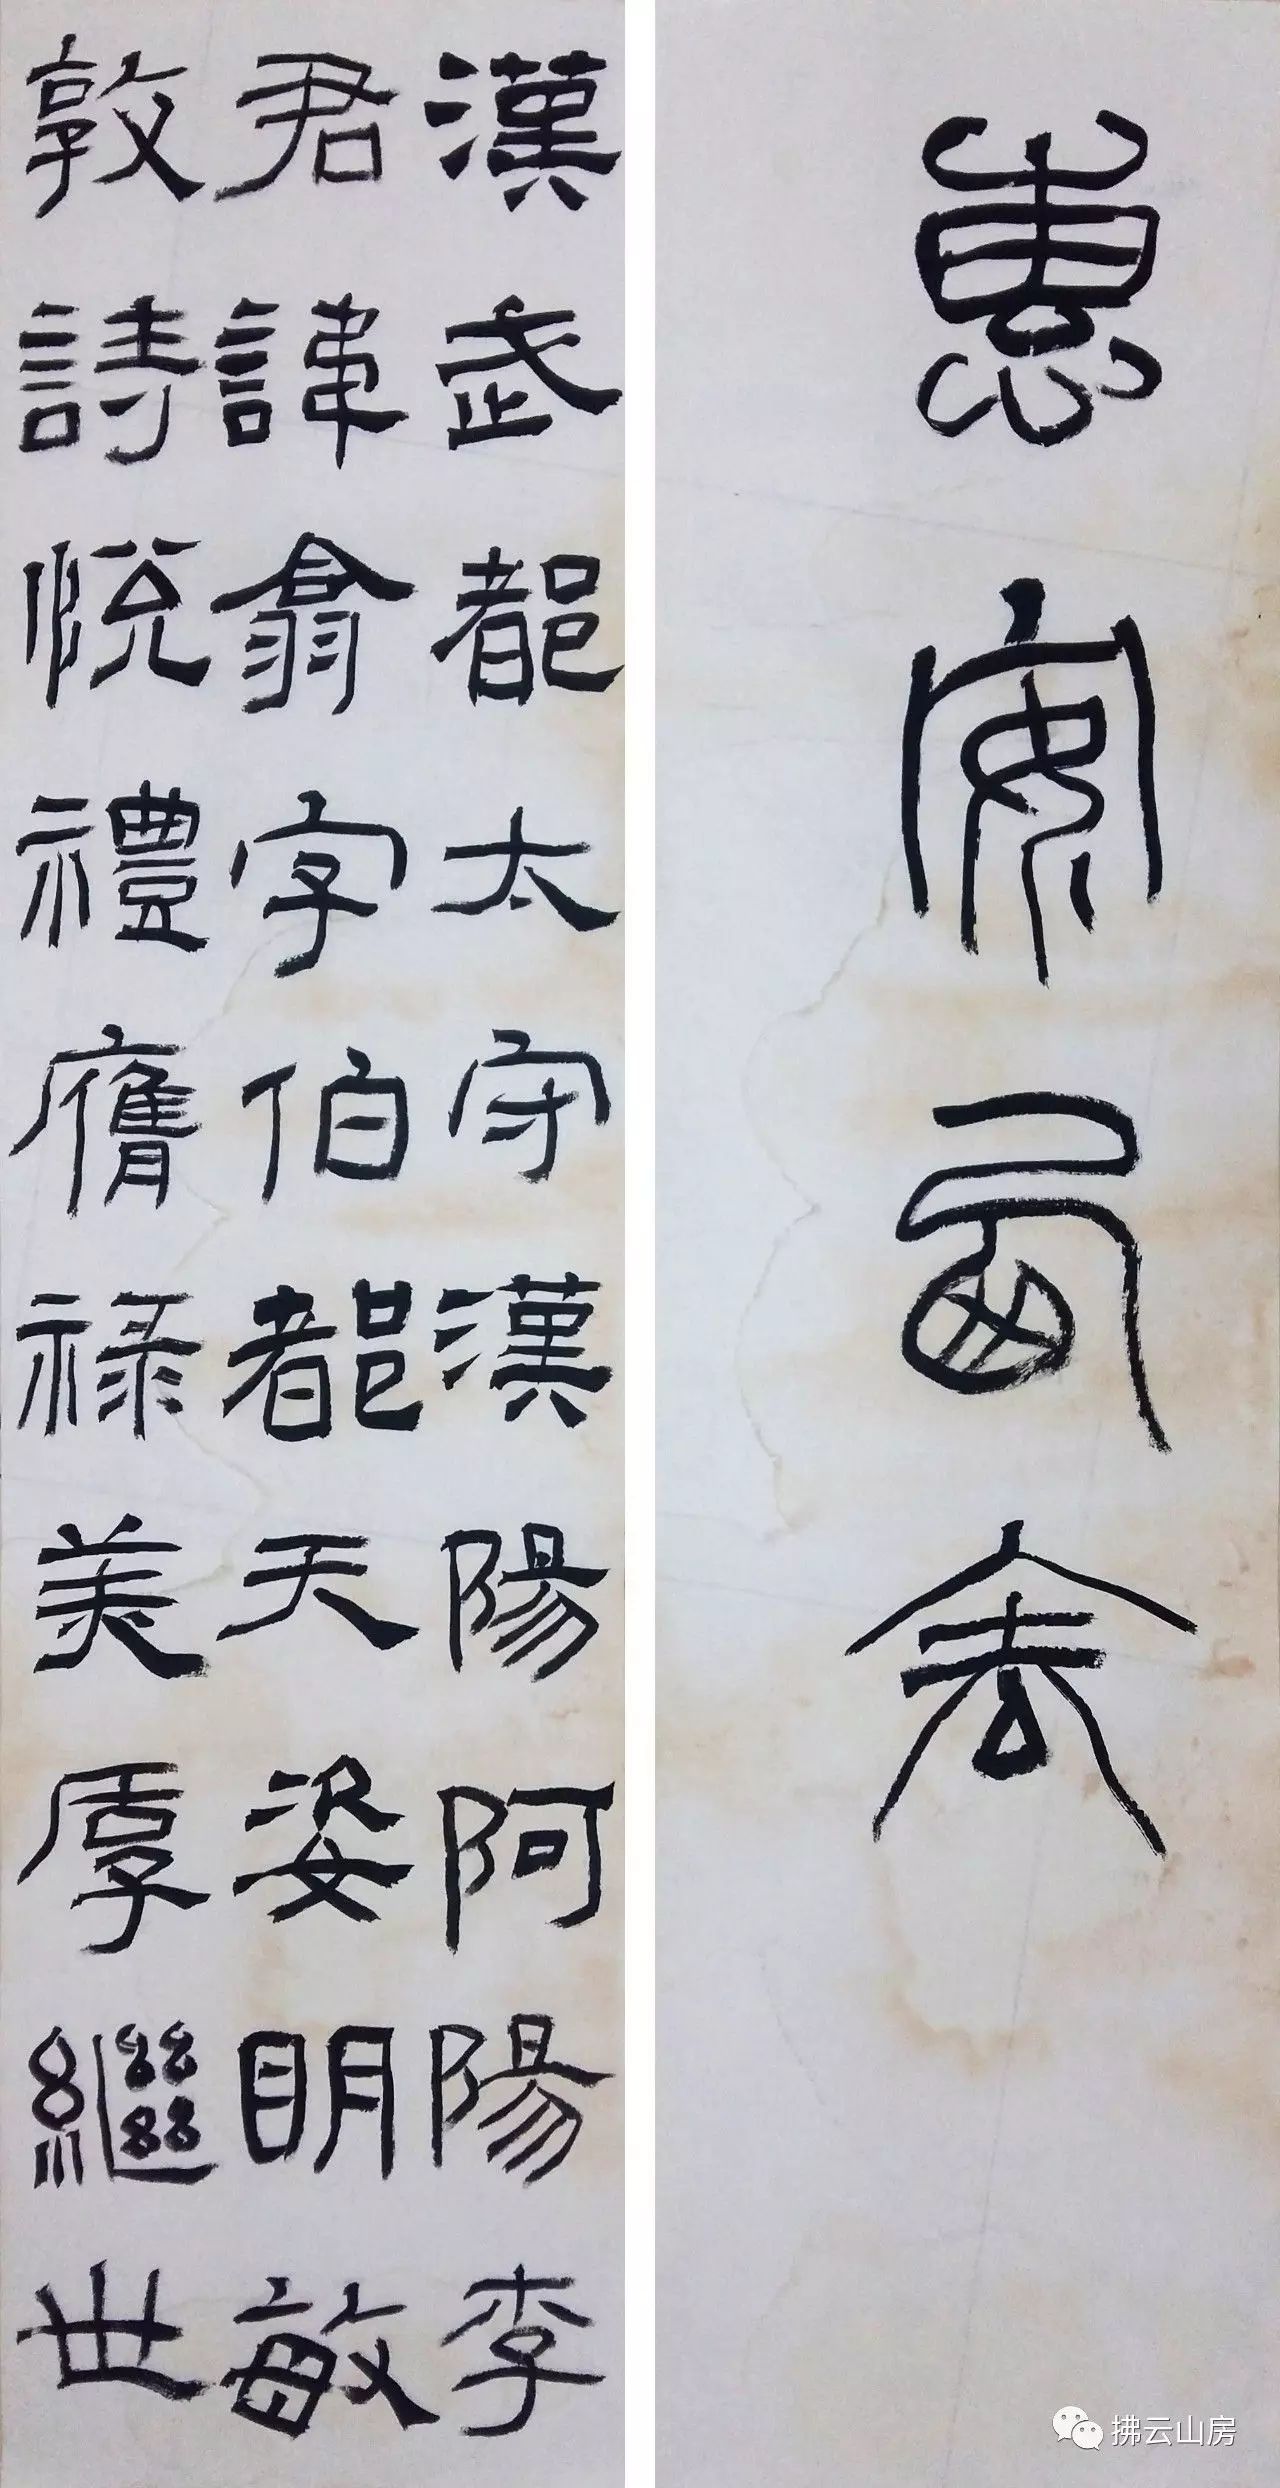 惠安西表
漢武都太守漢陽阿陽李
君諱翕字伯都天姿眀敏
敦詩悅禮膺祿美厚繼世
拂云山房